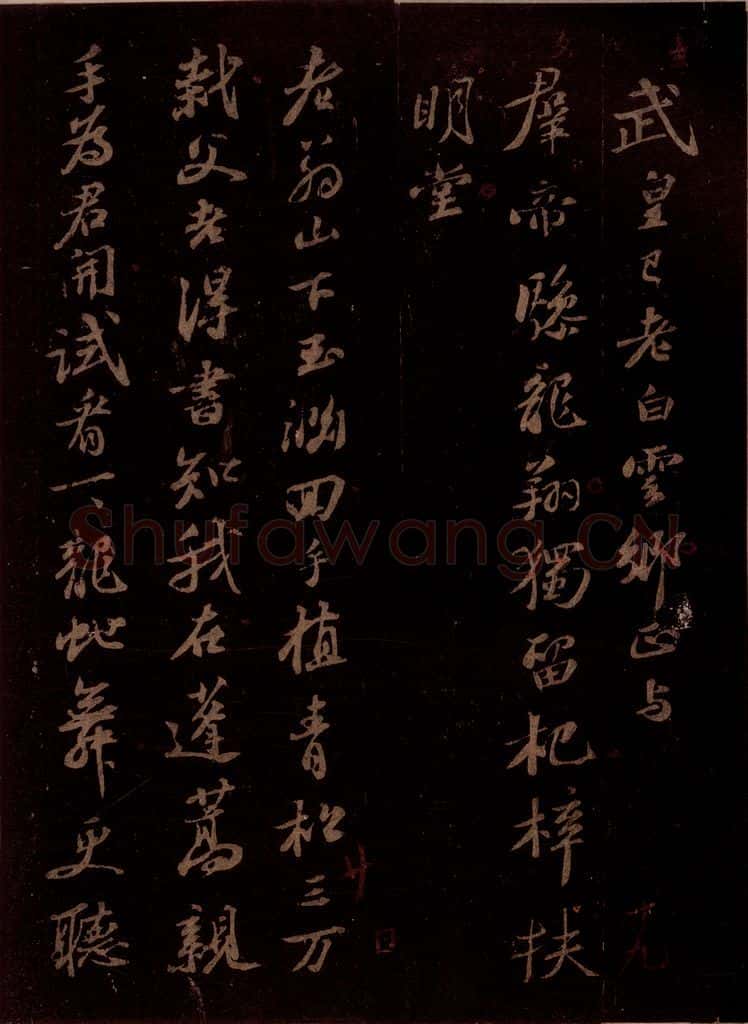 武皇已老白雲鄉正与
羣帝驂龍翔獨留杞梓扶
明堂
老翁山下玉淵回手植青松三万
栽父老得書知我在蓬蒿親
手為君開試看一一龍蛇舞更聽
Shufawang.CN